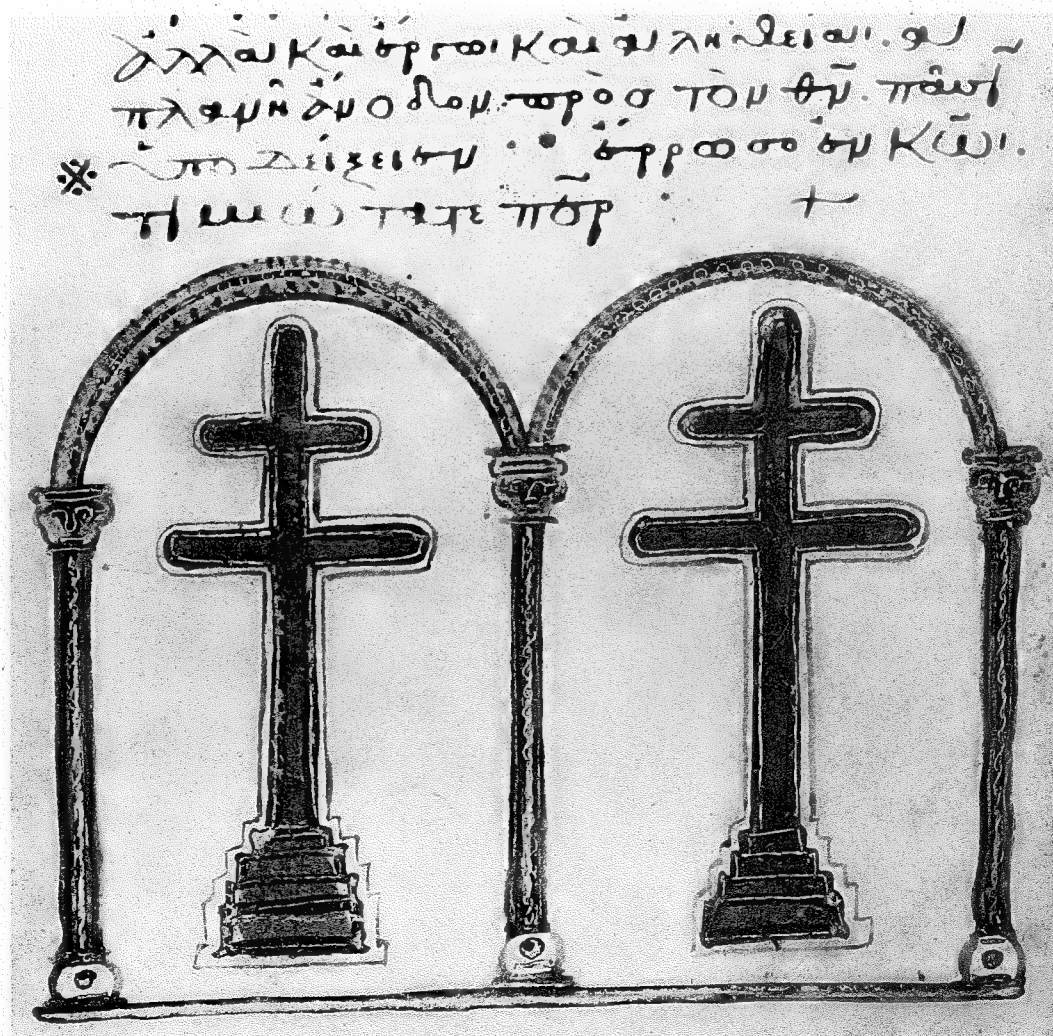 ἀλλὰ καὶ ἔργωι καὶ ἀληθείαι. ἀ
πλανῆ ἄνοδον πρὸς τὸν θν̄. πᾶσι
※ ὑποδείξειεν · ἔρρωσο ἐν κω̄ι.
τιμιώτατε περ̄ · +